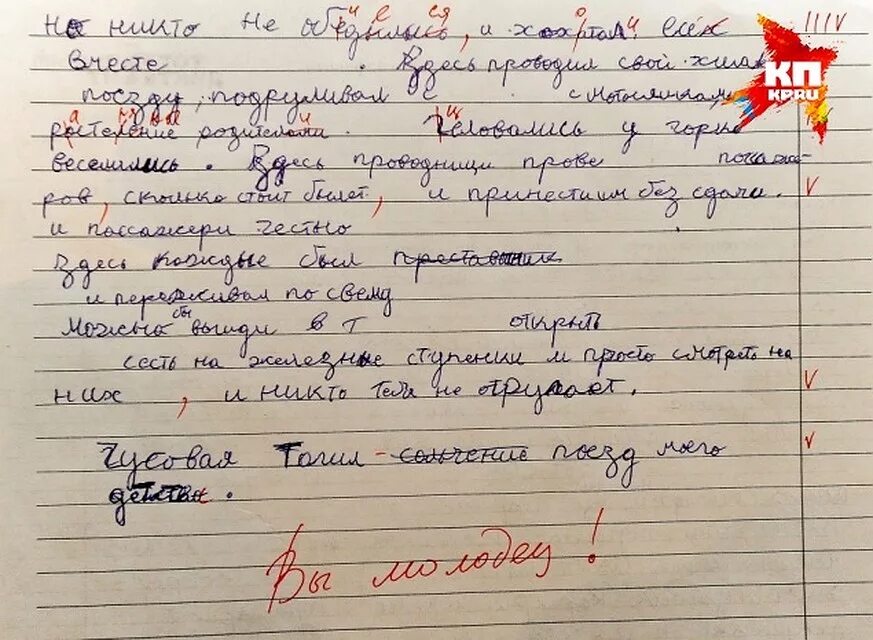 Но никто не обиделись, и хохотали всех
КП
KP.RU
IIIV
вместе . Здесь проводил свой
поезду, подруживал с с мотосянками
родителями. Целовались у горно
веселились. Здесь проводници прове
ров, сколько стоит билет, и принести им без сдачи. V
и пассажери честно .
Здесь каждые был преставник
и переживал по свему
Можно бы выйди в т открыть
сесть на железные ступении и просто смотреть на
них , и никто тебя не отругает. V
Чусовая Тагил - поезд моего V
детства.
Вы молодец!